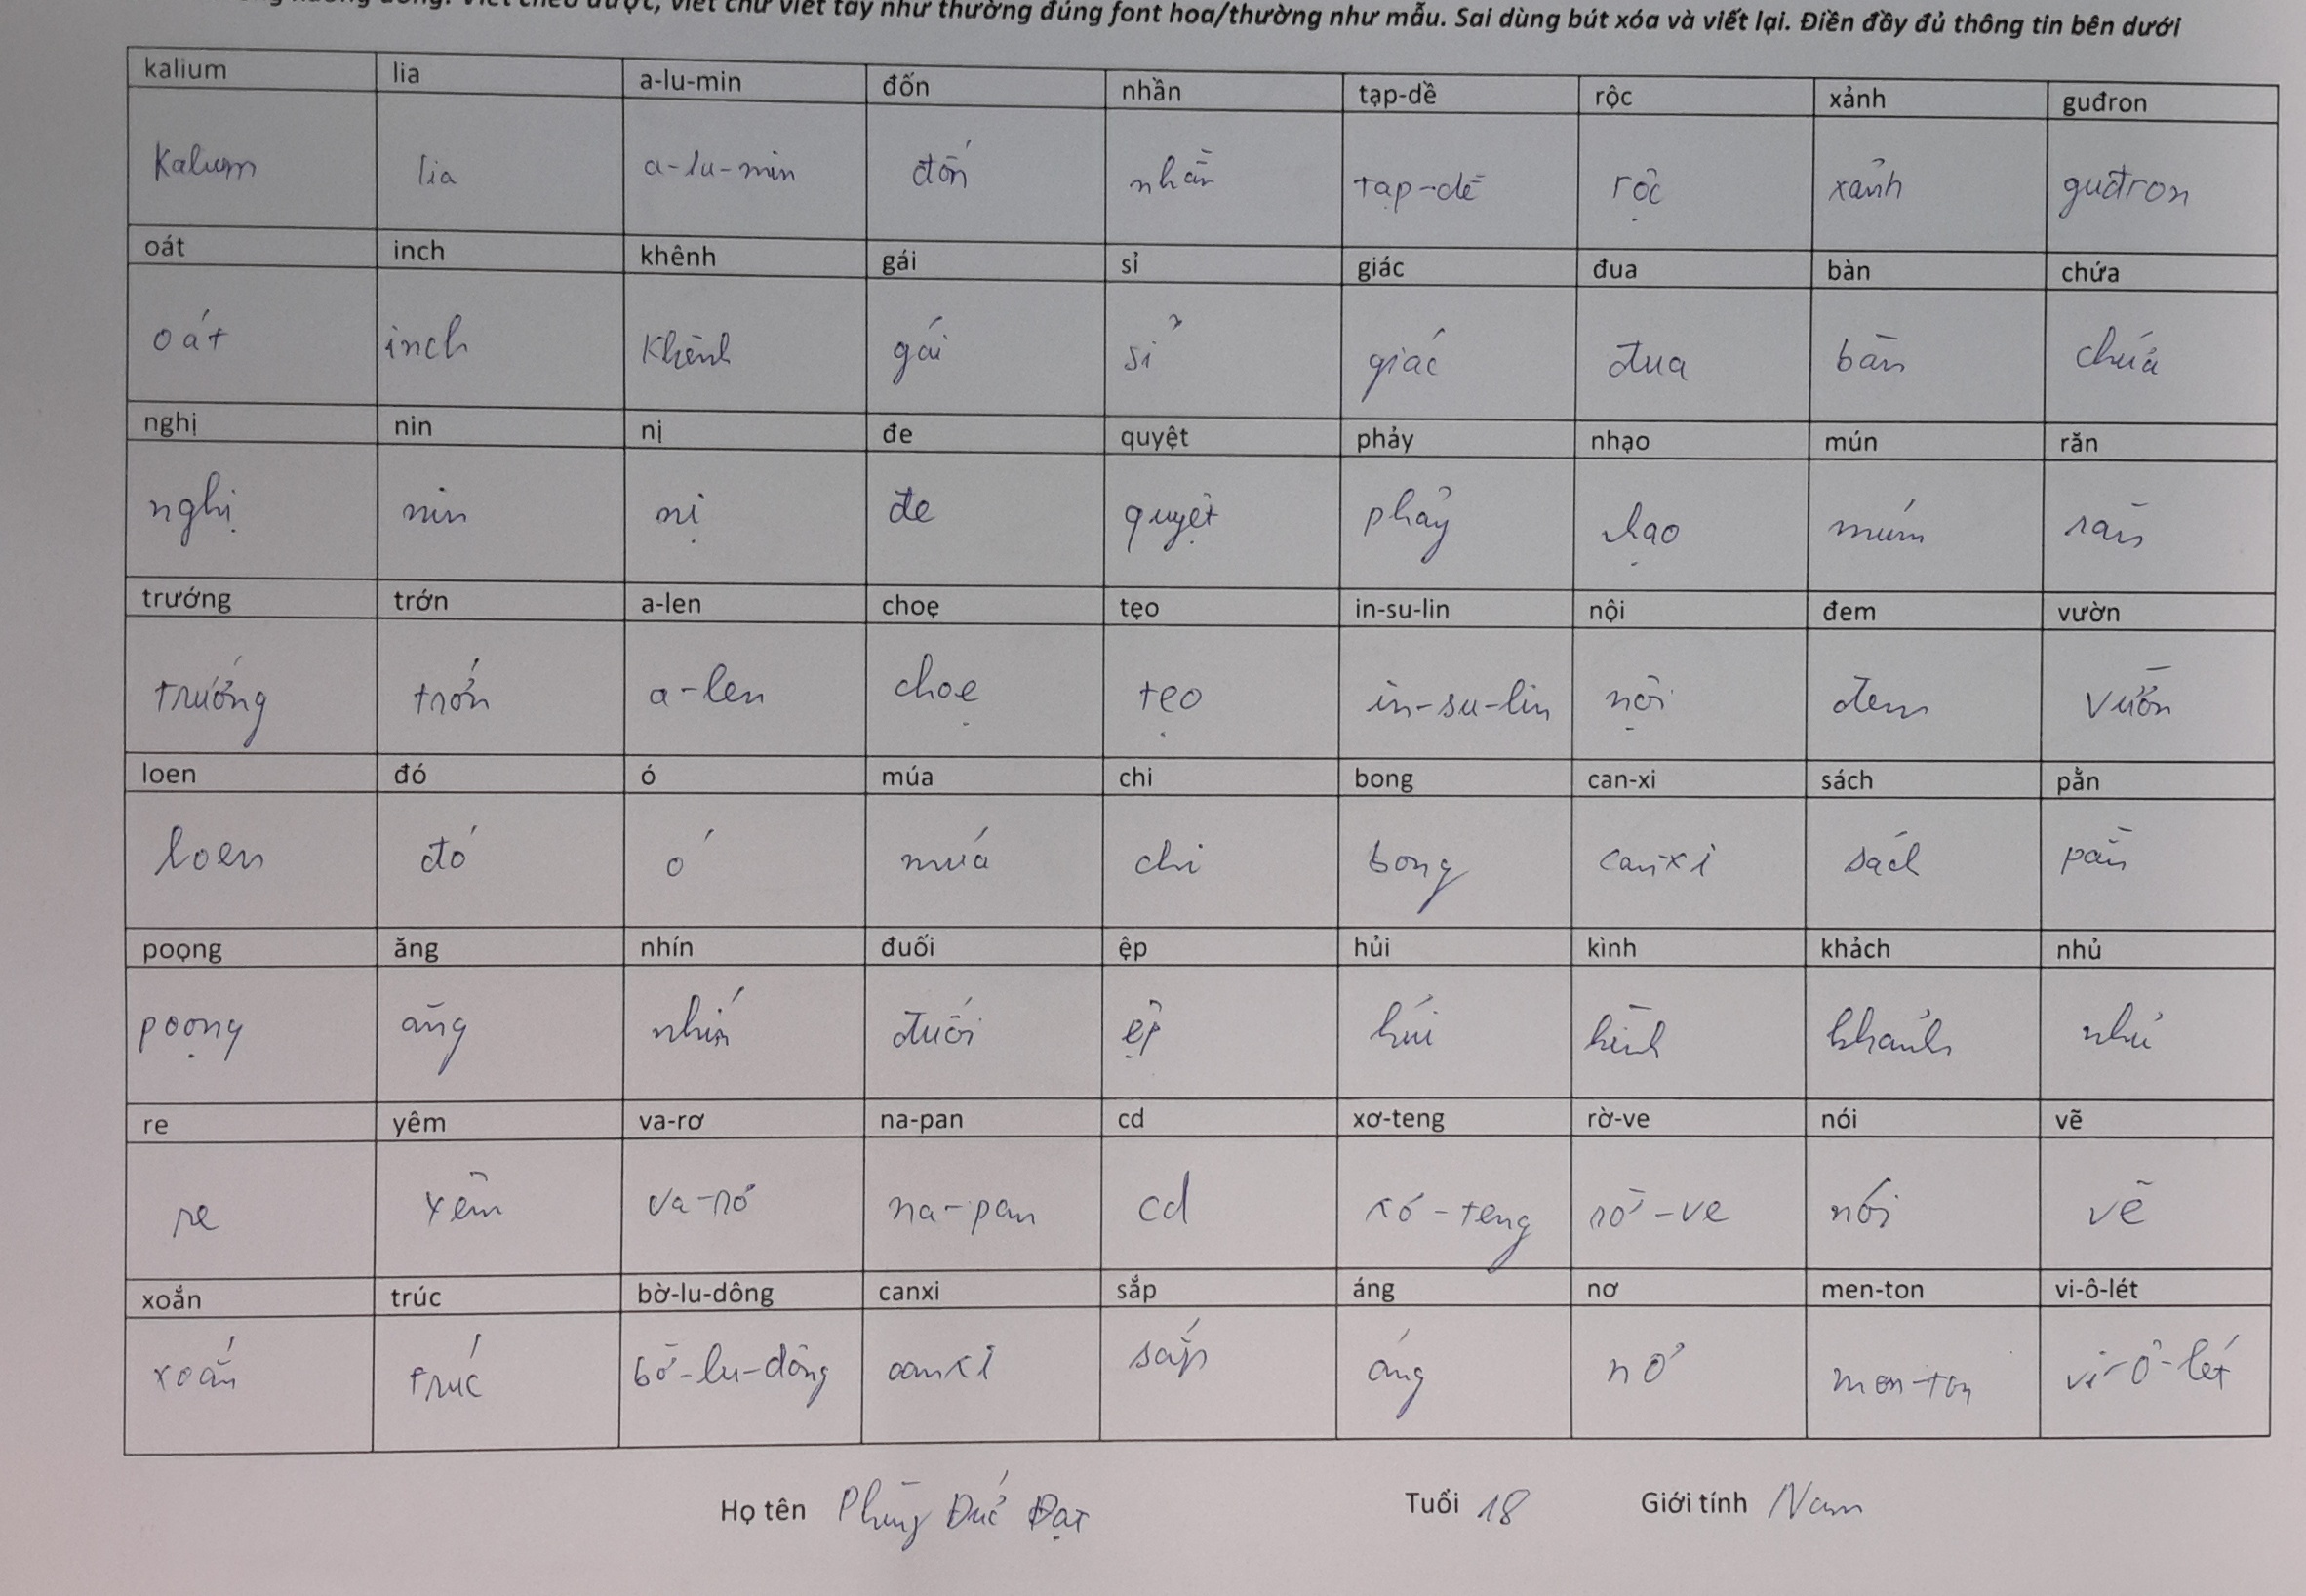 hướng đúng. Viết theo được, viết chữ viết tay như thường đúng font hoa/thường như mẫu. Sai dùng bút xóa và viết lại. Điền đầy đủ thông tin bên dưới
kalium lia a-lu-min đốn nhần tạp-dề rộc xảnh guđron
kalium lia a-lu-min đốn nhần tạp-dề rộc xảnh guđron
oát inch khênh gái sỉ giác đua bàn chứa
oát inch khênh gái sỉ giác đua bàn chứa
nghị nin nị đe quyệt phảy nhạo mún răn
nghị nin nị đe quyệt phảy nhạo mún răn
trướng trớn a-len choẹ tẹo in-su-lin nội đem vườn
trướng trớn a-len choẹ tẹo in-su-lin nội đem vườn
loen đó ó múa chi bong can-xi sách pằn
loen đó ó múa chi bong can-xi sách pằn
poọng ăng nhín đuối ệp hủi kình khảch nhủ
poọng ăng nhín đuối ệp hủi kình khảnh nhủ
re yêm va-rơ na-pan cd xơ-teng rờ-ve nói vẽ
re yêm va-rơ na-pan cd xơ-teng rờ-ve nói vẽ
xoắn trúc bờ-lu-dông canxi sắp áng nơ men-ton vi-ô-lét
xoắn trúc bờ-lu-dông canxi sắp áng nơ men-ton vi-ô-lét
Họ tên Phùng Đức Đạt Tuổi 18 Giới tính Nam